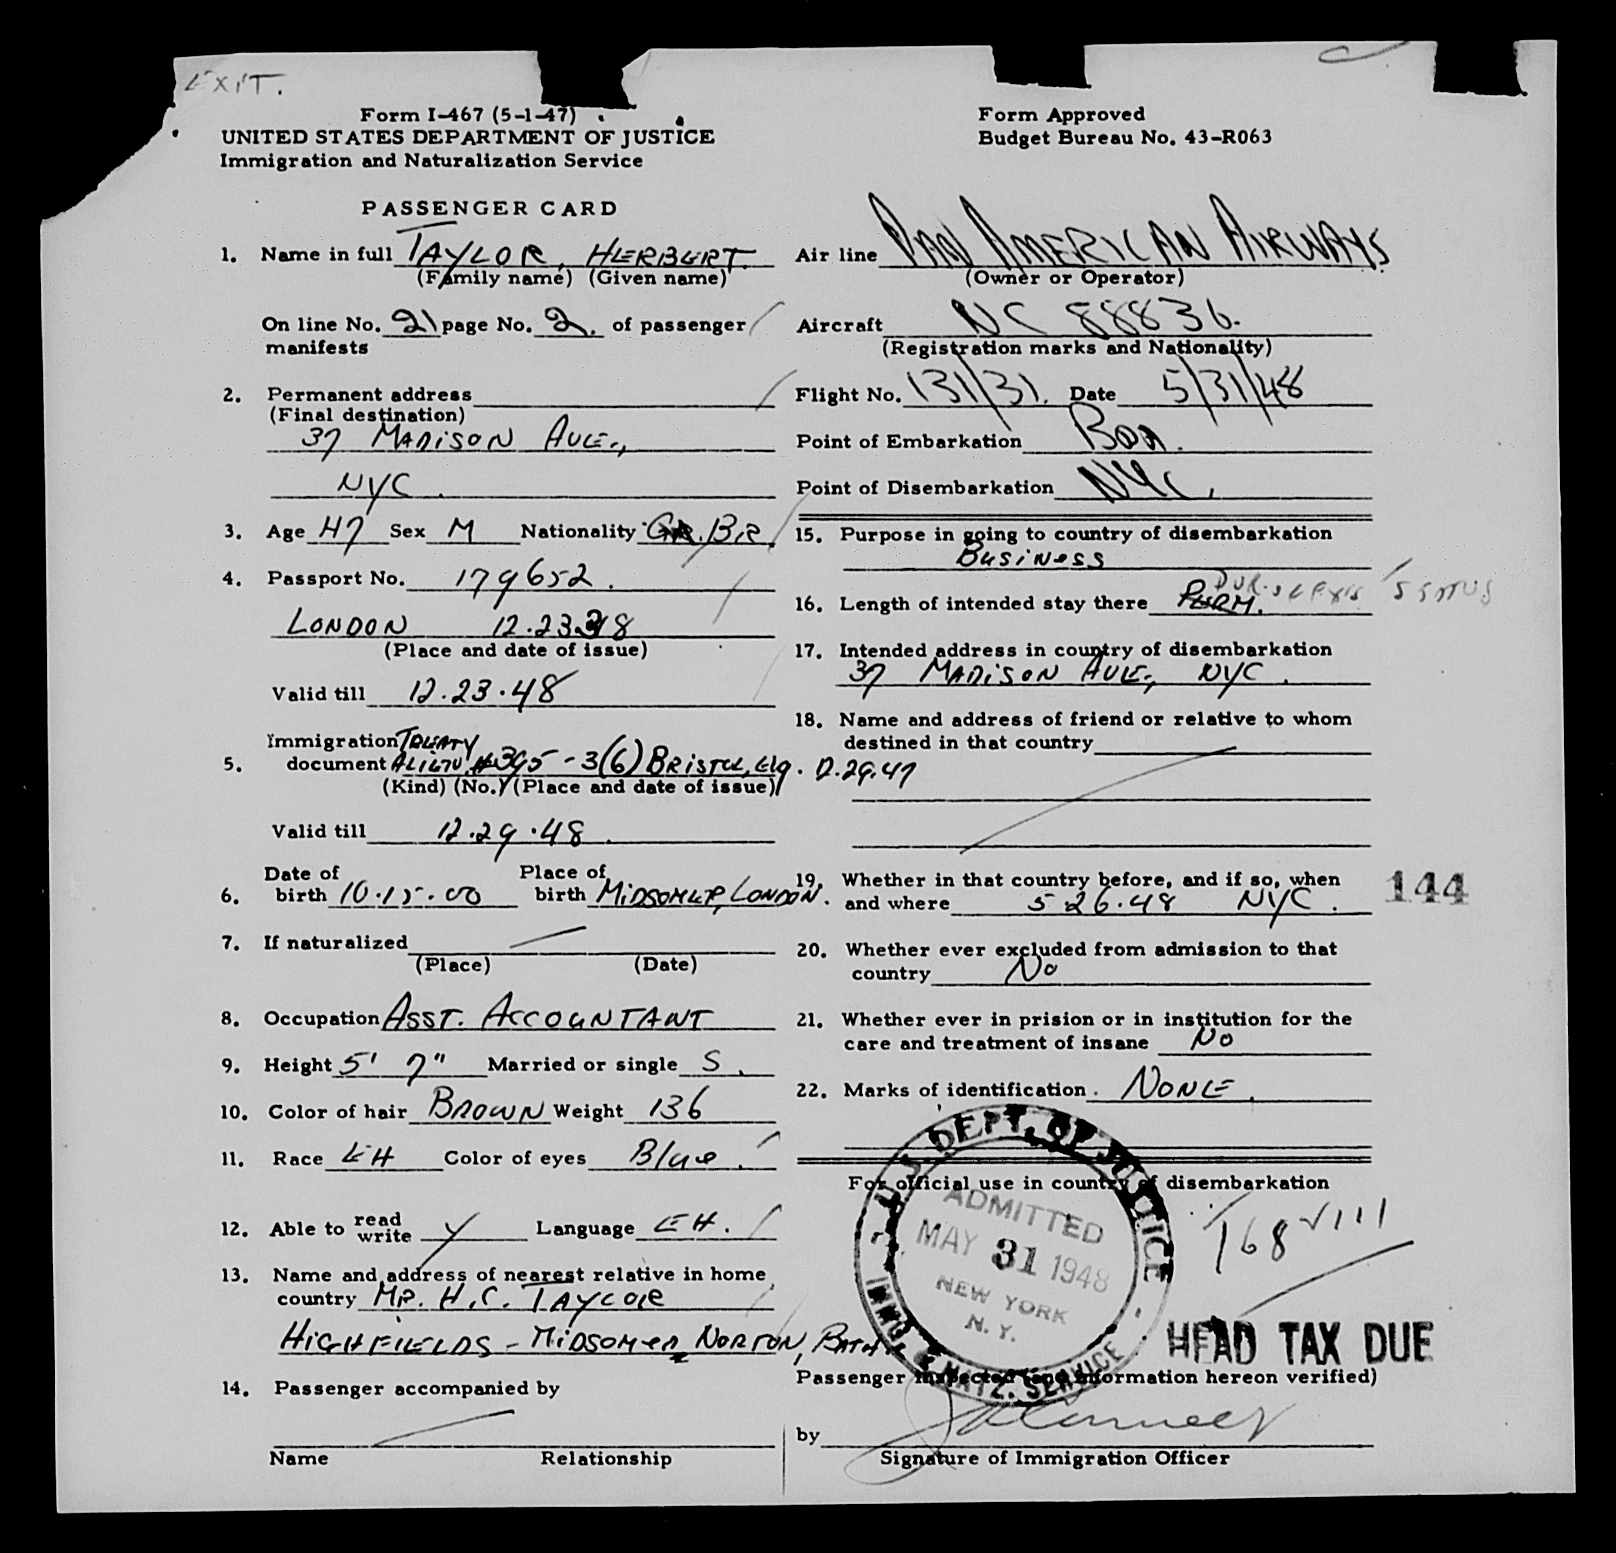 EXIT.
Form I-467 (5-1-47)
UNITED STATES DEPARTMENT OF JUSTICE
Immigration and Naturalization Service
Form Approved
Budget Bureau No. 43-R063
PASSENGER CARD
1. Name in full TAYLOR, HERBERT
(Family name) (Given name)
On line No. 21 page No. 2. of passenger
manifests
2. Permanent address
(Final destination)
37 MADISON AVE.,
NYC.
3. Age 47 Sex M Nationality GR. BR
4. Passport No. 179652.
LONDON 12.23
(Place and date of issue)
Valid till 12.23.48
5. Immigration document TREATY ALIEN # 395-3(6) BRISTOL, Elg. 12.29.47
(Kind) (No.) (Place and date of issue)
Valid till 12.29.48.
6. Date of birth 10.15.00 Place of birth MIDSOMER, LONDON.
7. If naturalized
(Place) (Date)
8. Occupation ASST. ACCOUNTANT
9. Height 5' 7" Married or single S.
10. Color of hair BROWN Weight 136
11. Race EH Color of eyes Blue.
12. Able to read write y Language EH.
13. Name and address of nearest relative in home
country MR. H.C. TAYLOR
HIGHFIELDS - MIDSOMER NORTON, BATH
14. Passenger accompanied by
Name Relationship
Air line PAN AMERICAN AIRWAYS
(Owner or Operator)
Aircraft NC 88836.
(Registration marks and Nationality)
Flight No. 131/31. Date 5/31/48
Point of Embarkation BDA.
Point of Disembarkation NYC.
15. Purpose in going to country of disembarkation
Business
16. Length of intended stay there PERM. DUR. STATUS
17. Intended address in country of disembarkation
37 MADISON AVE., NYC.
18. Name and address of friend or relative to whom
destined in that country
19. Whether in that country before, and if so, when
and where 5 26.48 NYC.
144
20. Whether ever excluded from admission to that
country No
21. Whether ever in prision or in institution for the
care and treatment of insane No
22. Marks of identification. NONE.
For official use in country of disembarkation
U.S. DEPT. OF JUSTICE
ADMITTED
MAY 31 1948
NEW YORK
N.Y.
IMMI. & NATZ. SERVICE
168 VIII
HEAD TAX DUE
Passenger inspected (and information hereon verified)
by
Signature of Immigration Officer